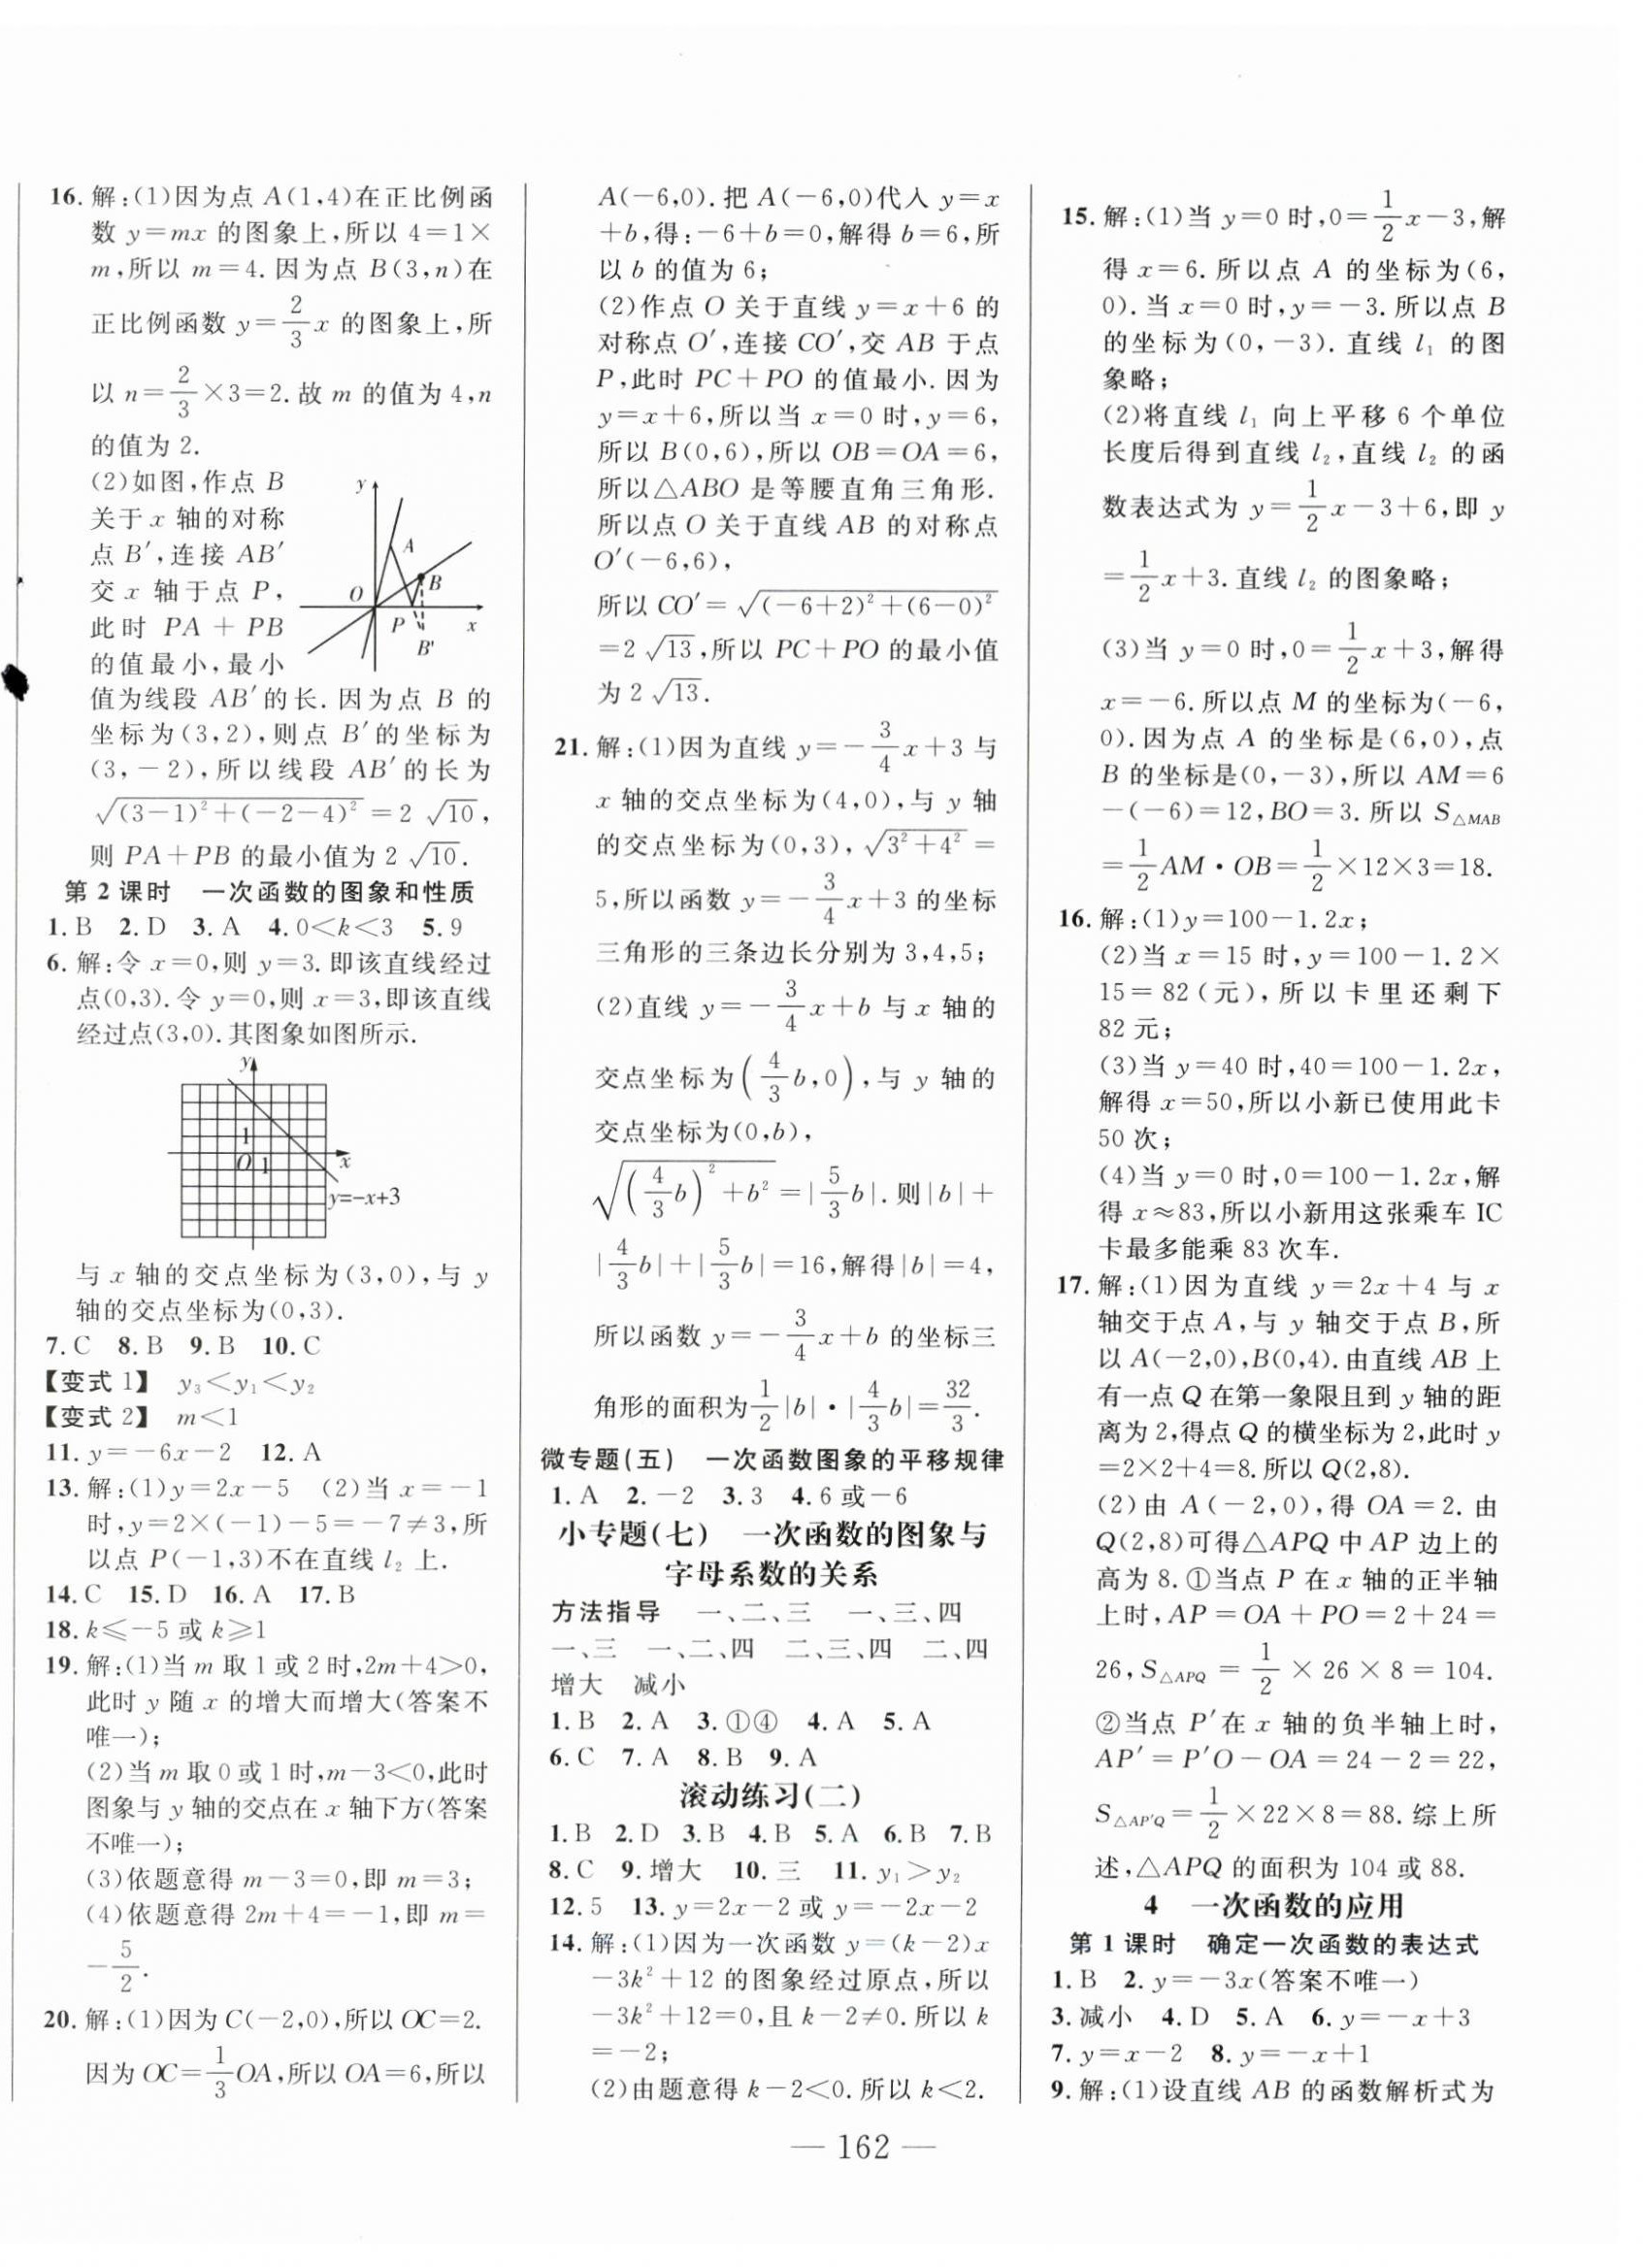 16. 解:(1)因为点 A(1,4)在正比例函
数 y=mx 的图象上,所以 4=1×
m,所以 m=4. 因为点 B(3,n)在
正比例函数 y=2/3x 的图象上,所
以 n=2/3×3=2. 故 m 的值为 4,n
的值为 2.
(2)如图,作点 B
关于 x 轴的对称
点 B′,连接 AB′
交 x 轴于点 P,
此时 PA+PB
的值最小,最小
y
A
B
O
P
x
B′
值为线段 AB′的长. 因为点 B 的
坐标为(3,2),则点 B′的坐标为
(3,-2),所以线段 AB′的长为
√((3-1)²+(-2-4)²)=2√10,
则 PA+PB 的最小值为 2√10.
第 2 课时 一次函数的图象和性质
1. B 2. D 3. A 4. 0<k<3 5. 9
6. 解:令 x=0,则 y=3. 即该直线经过
点(0,3). 令 y=0,则 x=3,即该直线
经过点(3,0). 其图象如图所示.
y
1
O 1
x
y=-x+3
与 x 轴的交点坐标为(3,0),与 y
轴的交点坐标为(0,3).
7. C 8. B 9. B 10. C
【变式 1】 y₃<y₁<y₂
【变式 2】 m<1
11. y=-6x-2 12. A
13. 解:(1)y=2x-5 (2)当 x=-1
时,y=2×(-1)-5=-7≠3,所
以点 P(-1,3)不在直线 l₂ 上.
14. C 15. D 16. A 17. B
18. k⩽-5 或 k⩾1
19. 解:(1)当 m 取 1 或 2 时,2m+4>0,
此时 y 随 x 的增大而增大(答案不
唯一);
(2)当 m 取 0 或 1 时,m-3<0,此时
图象与 y 轴的交点在 x 轴下方(答案
不唯一);
(3)依题意得 m-3=0,即 m=3;
(4)依题意得 2m+4=-1,即 m=
-5/2.
20. 解:(1)因为 C(-2,0),所以 OC=2.
因为 OC=1/3OA,所以 OA=6,所以
A(-6,0). 把 A(-6,0)代入 y=x
+b,得:-6+b=0,解得 b=6,所
以 b 的值为 6;
(2)作点 O 关于直线 y=x+6 的
对称点 O′,连接 CO′,交 AB 于点
P,此时 PC+PO 的值最小. 因为
y=x+6,所以当 x=0 时,y=6,
所以 B(0,6),所以 OB=OA=6,
所以△ABO 是等腰直角三角形.
所以点 O 关于直线 AB 的对称点
O′(-6,6),
所以 CO′=√((-6+2)²+(6-0)²)
=2√13,所以 PC+PO 的最小值
为 2√13.
21. 解:(1)因为直线 y=-3/4x+3 与
x 轴的交点坐标为(4,0),与 y 轴
的交点坐标为(0,3),√(3²+4²)=
5,所以函数 y=-3/4x+3 的坐标
三角形的三条边长分别为 3,4,5;
(2)直线 y=-3/4x+b 与 x 轴的
交点坐标为(4/3b,0),与 y 轴的
交点坐标为(0,b),
√((4/3b)²+b²)=|5/3b|. 则|b|+
|4/3b|+|5/3b|=16,解得|b|=4,
所以函数 y=-3/4x+b 的坐标三
角形的面积为1/2|b|·|4/3b|=32/3.
微专题(五) 一次函数图象的平移规律
1. A 2. -2 3. 3 4. 6 或-6
小专题(七) 一次函数的图象与
字母系数的关系
方法指导 一、二、三 一、三、四
一、三 一、二、四 二、三、四 二、四
增大 减小
1. B 2. A 3. ①④ 4. A 5. A
6. C 7. A 8. B 9. A
滚动练习(二)
1. B 2. D 3. B 4. B 5. A 6. B 7. B
8. C 9. 增大 10. 三 11. y₁>y₂
12. 5 13. y=2x-2 或 y=-2x-2
14. 解:(1)因为一次函数 y=(k-2)x
-3k²+12 的图象经过原点,所以
-3k²+12=0,且 k-2≠0. 所以 k
=-2;
(2)由题意得 k-2<0. 所以 k<2.
15. 解:(1)当 y=0 时,0=1/2x-3,解
得 x=6. 所以点 A 的坐标为(6,
0). 当 x=0 时,y=-3. 所以点 B
的坐标为(0,-3). 直线 l₁ 的图
象略;
(2)将直线 l₁ 向上平移 6 个单位
长度后得到直线 l₂,直线 l₂ 的函
数表达式为 y=1/2x-3+6,即 y
=1/2x+3. 直线 l₂ 的图象略;
(3)当 y=0 时,0=1/2x+3,解得
x=-6. 所以点 M 的坐标为(-6,
0). 因为点 A 的坐标是(6,0),点
B 的坐标是(0,-3),所以 AM=6
-(-6)=12,BO=3. 所以 S△MAB
=1/2AM·OB=1/2×12×3=18.
16. 解:(1)y=100-1.2x;
(2)当 x=15 时,y=100-1.2×
15=82(元),所以卡里还剩下
82 元;
(3)当 y=40 时,40=100-1.2x,
解得 x=50,所以小新已使用此卡
50 次;
(4)当 y=0 时,0=100-1.2x,解
得 x≈83,所以小新用这张乘车 IC
卡最多能乘 83 次车.
17. 解:(1)因为直线 y=2x+4 与 x
轴交于点 A,与 y 轴交于点 B,所
以 A(-2,0),B(0,4). 由直线 AB 上
有一点 Q 在第一象限且到 y 轴的距
离为 2,得点 Q 的横坐标为 2,此时 y
=2×2+4=8. 所以 Q(2,8).
(2)由 A(-2,0),得 OA=2. 由
Q(2,8)可得△APQ 中 AP 边上的
高为 8. ①当点 P 在 x 轴的正半轴
上时,AP=OA+PO=2+24=
26,S△APQ=1/2×26×8=104.
②当点 P′在 x 轴的负半轴上时,
AP′=P′O-OA=24-2=22,
S△AP′Q=1/2×22×8=88. 综上所
述,△APQ 的面积为 104 或 88.
4 一次函数的应用
第 1 课时 确定一次函数的表达式
1. B 2. y=-3x(答案不唯一)
3. 减小 4. D 5. A 6. y=-x+3
7. y=x-2 8. y=-x+1
9. 解:(1)设直线 AB 的函数解析式为
— 162 —